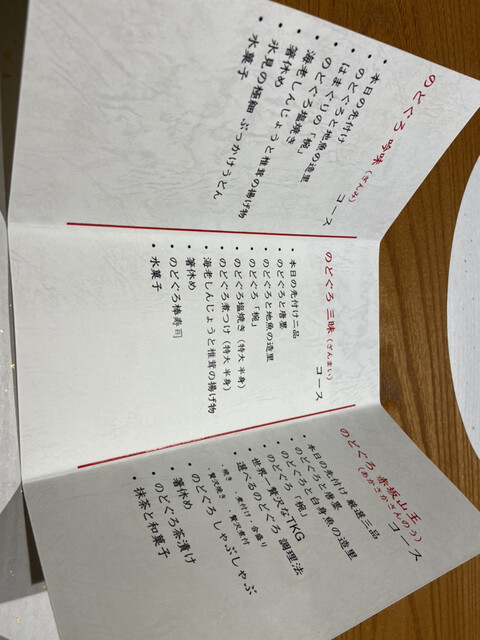 のどぐろ 吟味(ぎんみ)
コース
・本日の先付け
・のどぐろと地魚の造里
・はまぐりの「椀」
・のどぐろ塩焼き
・海老しんじょうと椎茸の揚げ物
・箸休め
・氷見の極細 ぶっかけうどん
・水菓子
のどぐろ 三昧(ざんまい)
コース
・本日の先付け二品
・のどぐろと唐墨
・のどぐろと地魚の造里
・のどぐろ「椀」
・のどぐろ塩焼き(特大 半身)
・のどぐろ煮つけ(特大 半身)
・海老しんじょうと椎茸の揚げ物
・箸休め
・のどぐろ棒寿司
・水菓子
のどぐろ 赤坂山王
(あかさかさんのう)
コース
・本日の先付け 厳選三品
・のどぐろと唐墨
・のどぐろと白身魚の造里
・のどぐろ「椀」
・世界一贅沢なTKG
・選べるのどぐろ 調理法
・焼き ・煮付け ・合盛り
・贅沢焼き ・贅沢煮付
・のどぐろ しゃぶしゃぶ
・箸休め
・のどぐろ茶漬け
・抹茶と和菓子